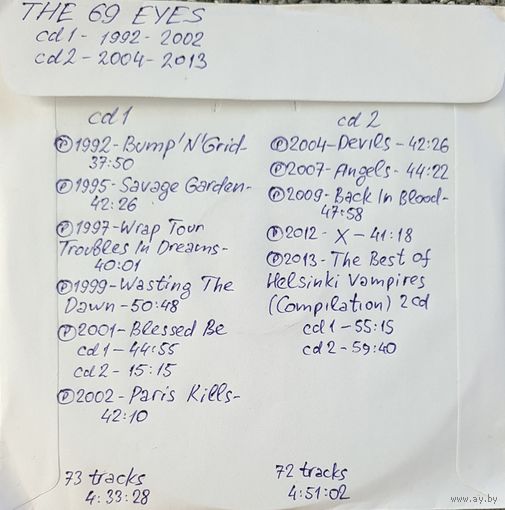 THE 69 EYES
cd1 - 1992 - 2002
cd2 - 2004 - 2013
cd1
Ⓟ1992-Bump'N'Grid-
37:50
Ⓟ1995-Savage Garden-
42:26
Ⓟ1997-Wrap Your
Troubles In Dreams-
40:01
Ⓟ1999-Wasting The
Dawn-50:48
Ⓟ2001-Blessed Be
cd1-44:55
cd2-15:15
Ⓟ2002-Paris Kills-
42:10
73 tracks
4:33:28
cd2
Ⓟ2004-Devils-42:26
Ⓟ2007-Angels-44:22
Ⓟ2009-Back In Blood-
47:58
Ⓟ2012-X-41:18
Ⓟ2013-The Best of
Helsinki Vampires
(Compilation) 2cd
cd1-55:15
cd2-59:40
72 tracks
4:51:02
www.ay.by